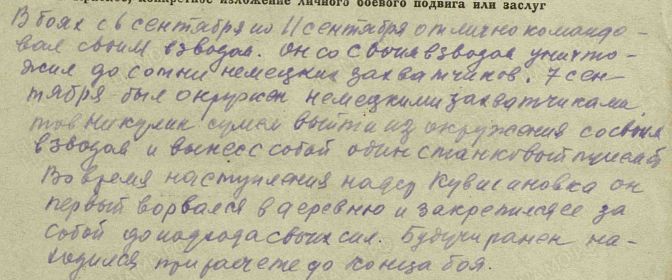 краткое, конкретное изложение личного боевого подвига или заслуг
В боях с 6 сентября по 11 сентября отлично командо-
вал своим взводом. Он со своим взводом уничто-
жил до сотни немецких захватчиков. 7 сен-
тября был окружен немецкими захватчиками
тов Никулин сумел выйти из окружения со своим
взводом и вынес с собой один станковый пулемёт
Во время наступления на дер. он
первый ворвался в деревню и закрепил ее за
собой до подхода своих сил. Будучи ранен на-
ходился при расчете до конца боя.